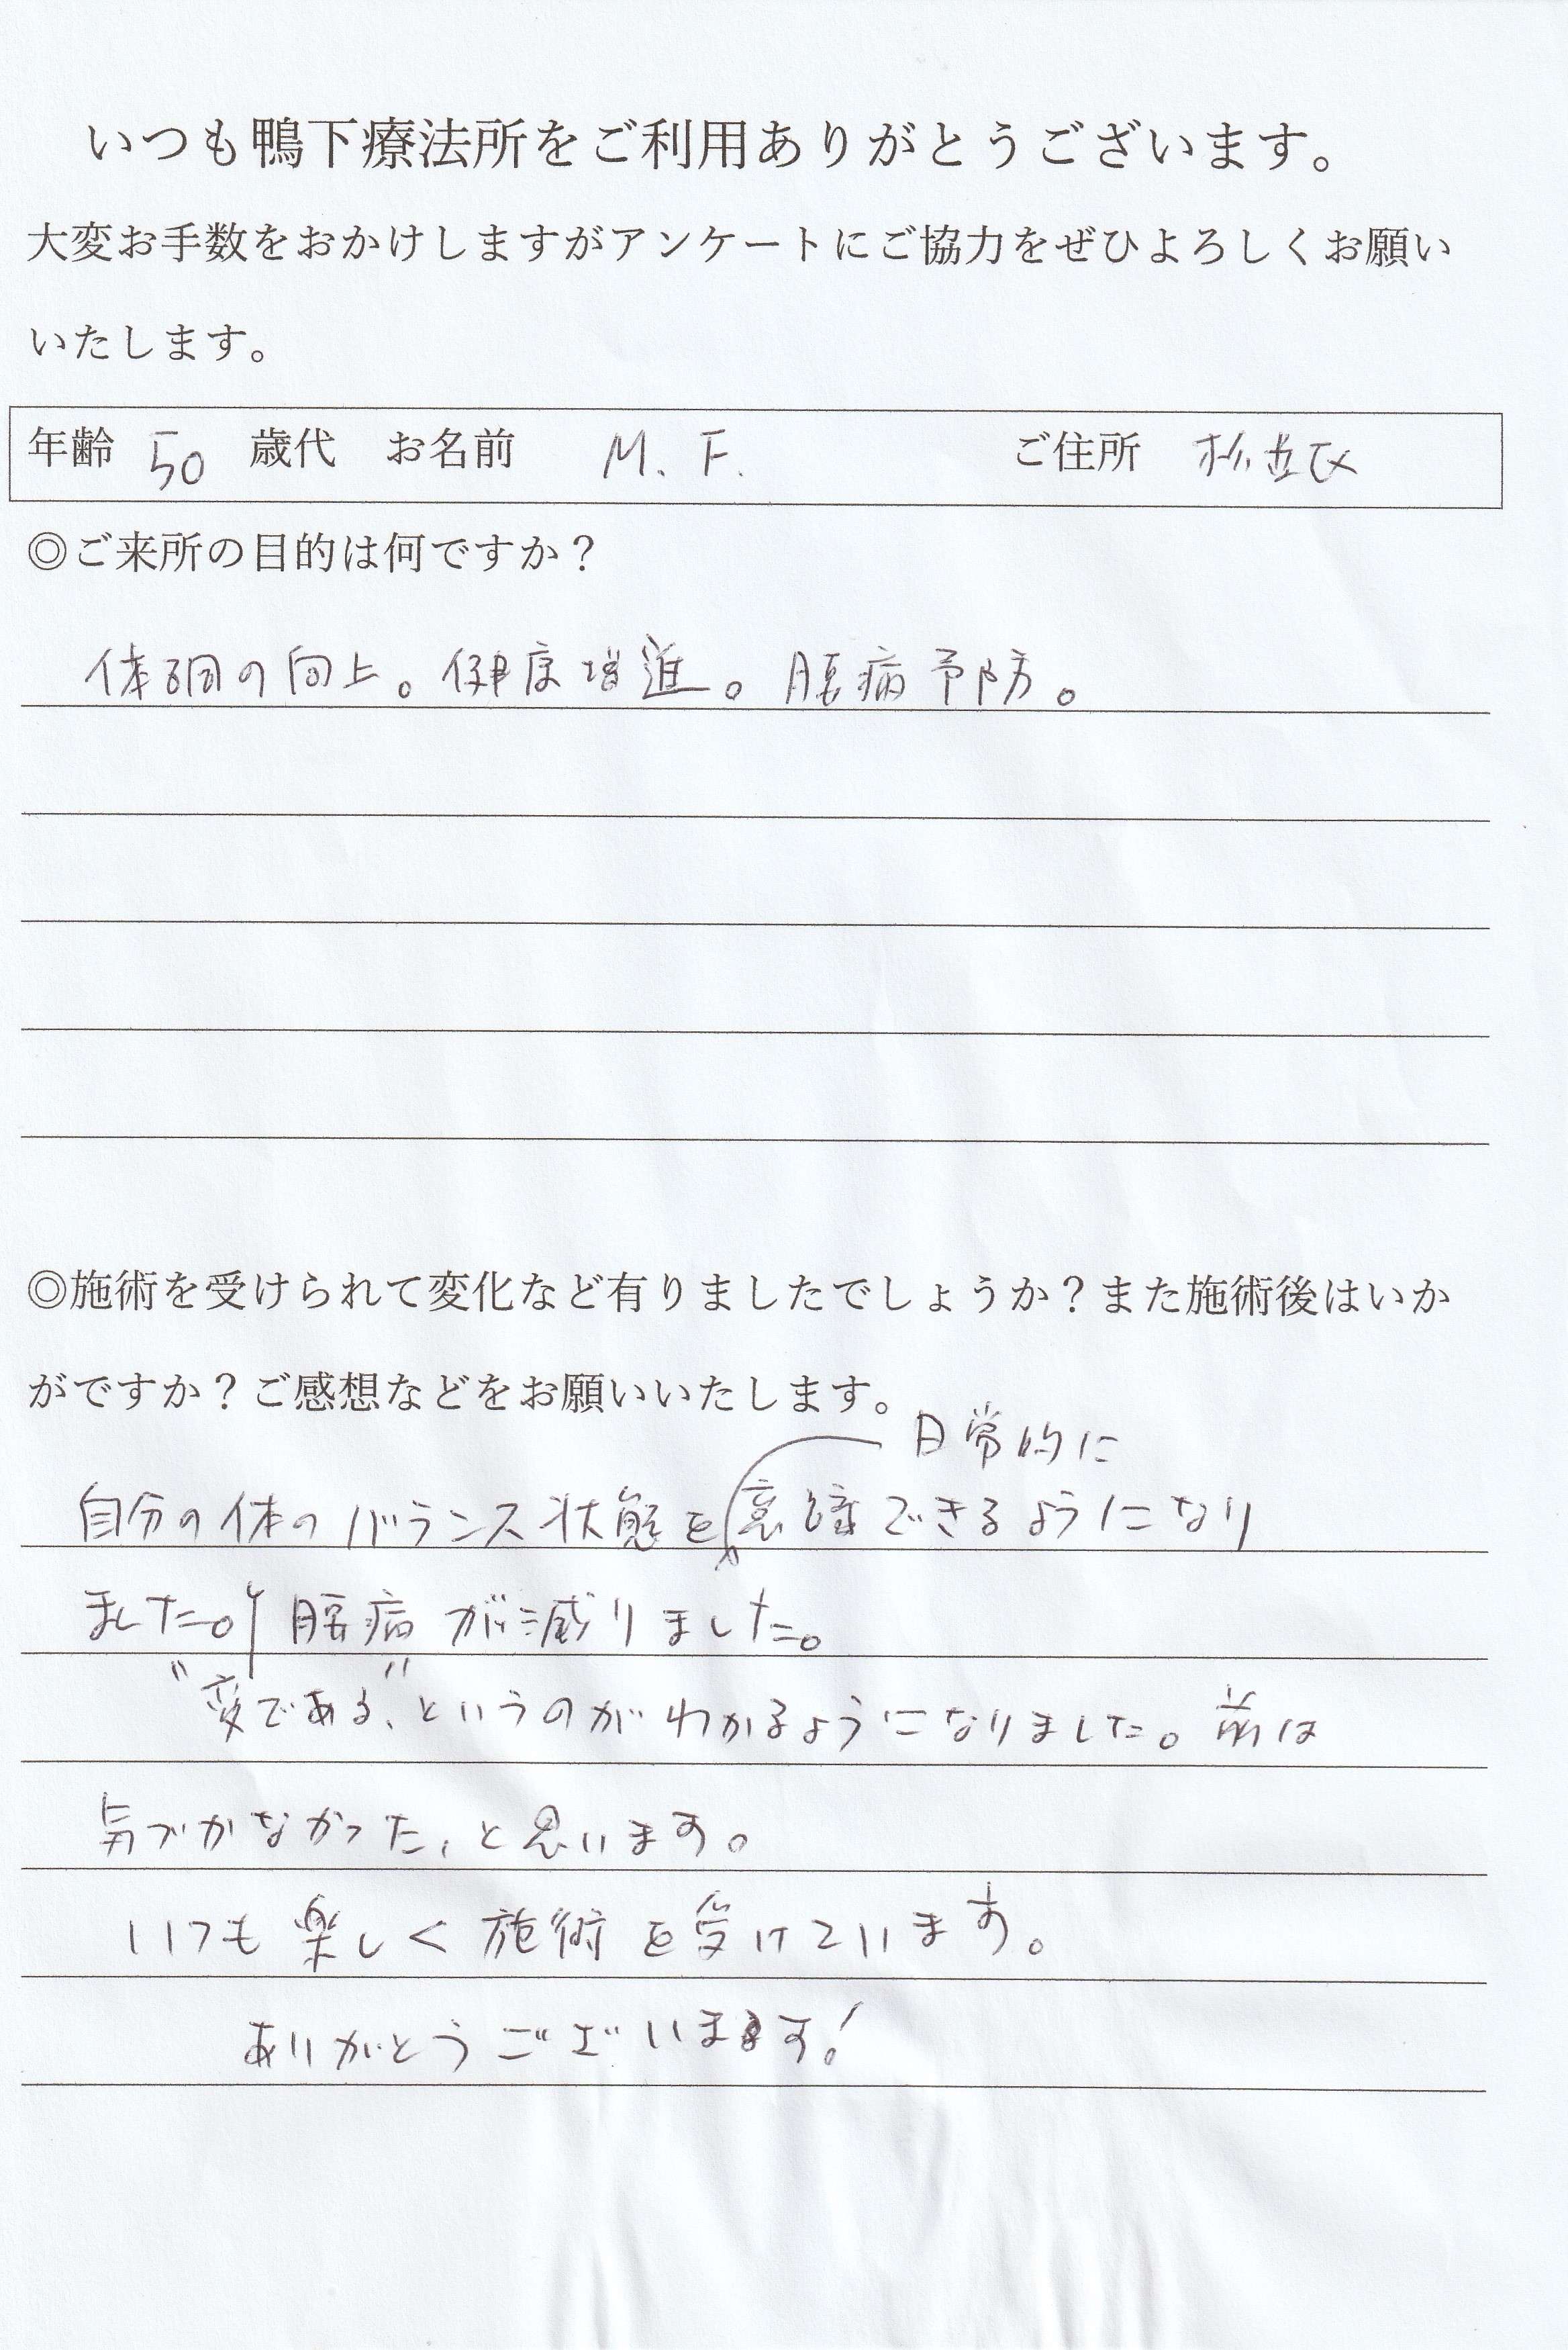 いつも鴨下療法所をご利用ありがとうございます。
大変お手数をおかけしますがアンケートにご協力をぜひよろしくお願い
いたします。
年齢 50 歳代 お名前 M. F. ご住所 杉並区
◎ご来所の目的は何ですか？
体調の向上。健康増進。腰痛予防。
◎施術を受けられて変化など有りましたでしょうか？また施術後はいか
がですか？ご感想などをお願いいたします。
日常的に
自分の体のバランス状態を意識できるようになり
ました。腰痛が減りました。
"変である"というのがわかるようになりました。前は
気づかなかった、と思います。
いつも楽しく施術を受けています。
ありがとうございます!